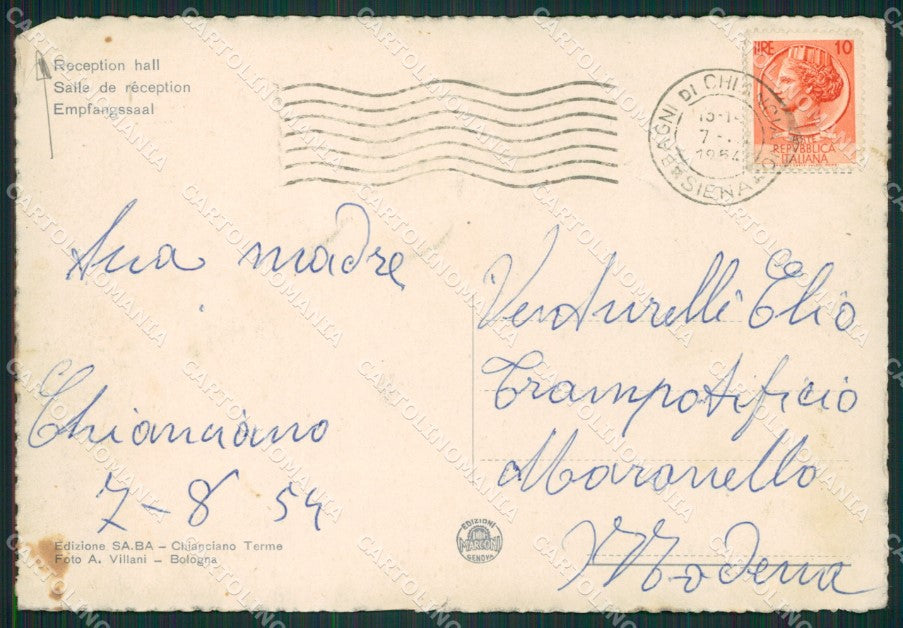 Reception hall
Salle de réception
Empfangssaal
LIRE 10
POSTE
REPVBBLICA
ITALIANA
BAGNI DI CHIANCIANO
SIENA
7
1954
Sua madre
Chianciano
7-8 54
Venturelli Elio
Trampotificio
Maranello
Modena
Edizione SA.BA – Chianciano Terme
Foto A. Villani – Bologna
EDIZIONI
MARCONI
GENOVA
CARTOLINOMANIA